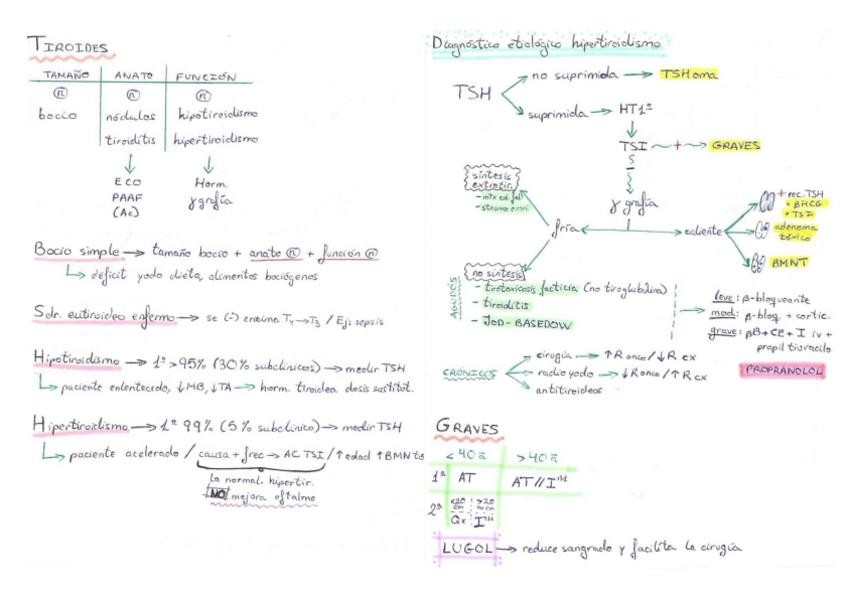 TIROIDES
TAMAÑO ANATO FUNCIÓN
n n n
bocio nódulos hipotiroidismo
tiroiditis hipertiroidismo
ECO Horm.
PAAF γgrafía
(Ac)
Bocio simple → tamaño bocio + anato n + función n
↳ déficit yodo dieta, alimentos bociógenos
Sdr. eutiroideo enfermo → se (-) enzima T4→T3 / Ej: sepsis
Hipotiroidismo → 1º >95% (30% subclínicos) → medir TSH
↳ paciente enlentecido, ↓MB, ↓TA → horm. tiroidea dosis sustitut.
Hipertiroidismo → 1º 99% (5% subclínico) → medir TSH
↳ paciente acelerado / causa + frec → AC TSI / ↑edad ↑BMNTs
La normal. hipertir.
NO mejora oftalmo
Diagnóstico etiológico hipertiroidismo
TSH
no suprimida → TSHoma
suprimida → HT1º
TSI + → GRAVES
-
γgrafía
fría
caliente
síntesis
extratir.
- struma ovari
+ rec. TSH
• βHCG
• TSI
adenoma
tóxico
BMNT
no síntesis
AGUDOS
- tirotoxicosis facticia (no tiroglobulina)
- tiroiditis
- JOD-BASEDOW
leve: β-bloqueante
mod: β-bloq. + cortic.
grave: βB + CE + I iv +
propil tiouracilo
PROPRANOLOL
CRÓNICOS
cirugía → ↑Ronco/↓R cx
radioyodo → ↓Ronco/↑R cx
antitiroideos
GRAVES
<40a >40a
1ª AT AT//I131
2ª
Qx I131
LUGOL → reduce sangrado y facilita la cirugía